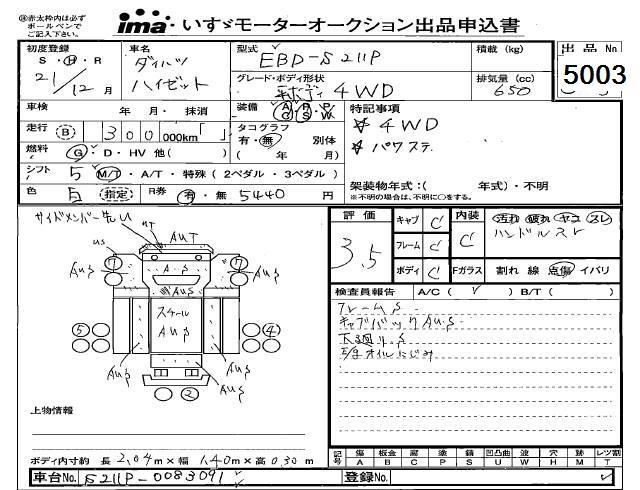 ※赤太枠内は必ず
ボールペンで
ご記入下さい。
ima いすゞモーターオークション出品申込書
初度登録 車名 型式 EBD-S211P 積載(kg) 出品No
S・H・R ダイハツ グレード・ボディ形状 排気量(cc) 5003
21/12月 ハイゼット 4WD 650
車検 年 月・ 抹消 装備 A R P A C S W 特記事項
走行 B 300 000km「 」 タコグラフ ☆4WD
燃料 G・D・HV 他( ) 有・無 別体 ☆パワステ
( 年 月)
シフト 5 M/T・A/T・特殊(2ペダル・3ペダル) 架装物年式:( 年式)・不明
色 白 指定 R券 有・無 5440 円 ※不明の場合は、不明に○をする。
サイドメンバー先U
評価 3.5
キャブ C 内装 C 汚れ 破れ ヤコ スレ
フレーム C ハンドルスレ
ボディ C Fガラス 割れ 線 点傷 イバリ
uS uT AuT
7 7
AuS AuS
AuS
スケール
AuS
5 4
AuS AuS
AuS
2
検査員報告 A/C( レ ) B/T( )
フレームS
キャブバックAuS
下廻りS
E/gオイルにじみ
上物情報
ボディ内寸約 長 2.04m×幅 1.40m×高 0.30m
記号 傷 板金 腐 塗 錆 凹凸曲 波 穴 跡 レンズ割
A B C P S U W H M T
車台No. S211P-0083091 登録No.